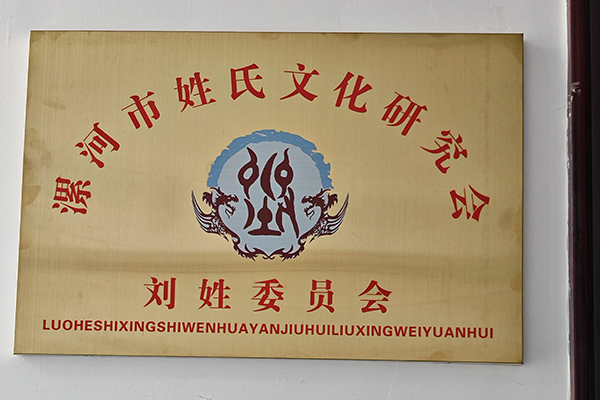 漯河市姓氏文化研究会
刘姓委员会
LUOHESHIXINGSHIWENHUAYANJIUHUILIUXINGWEIYUANHUI